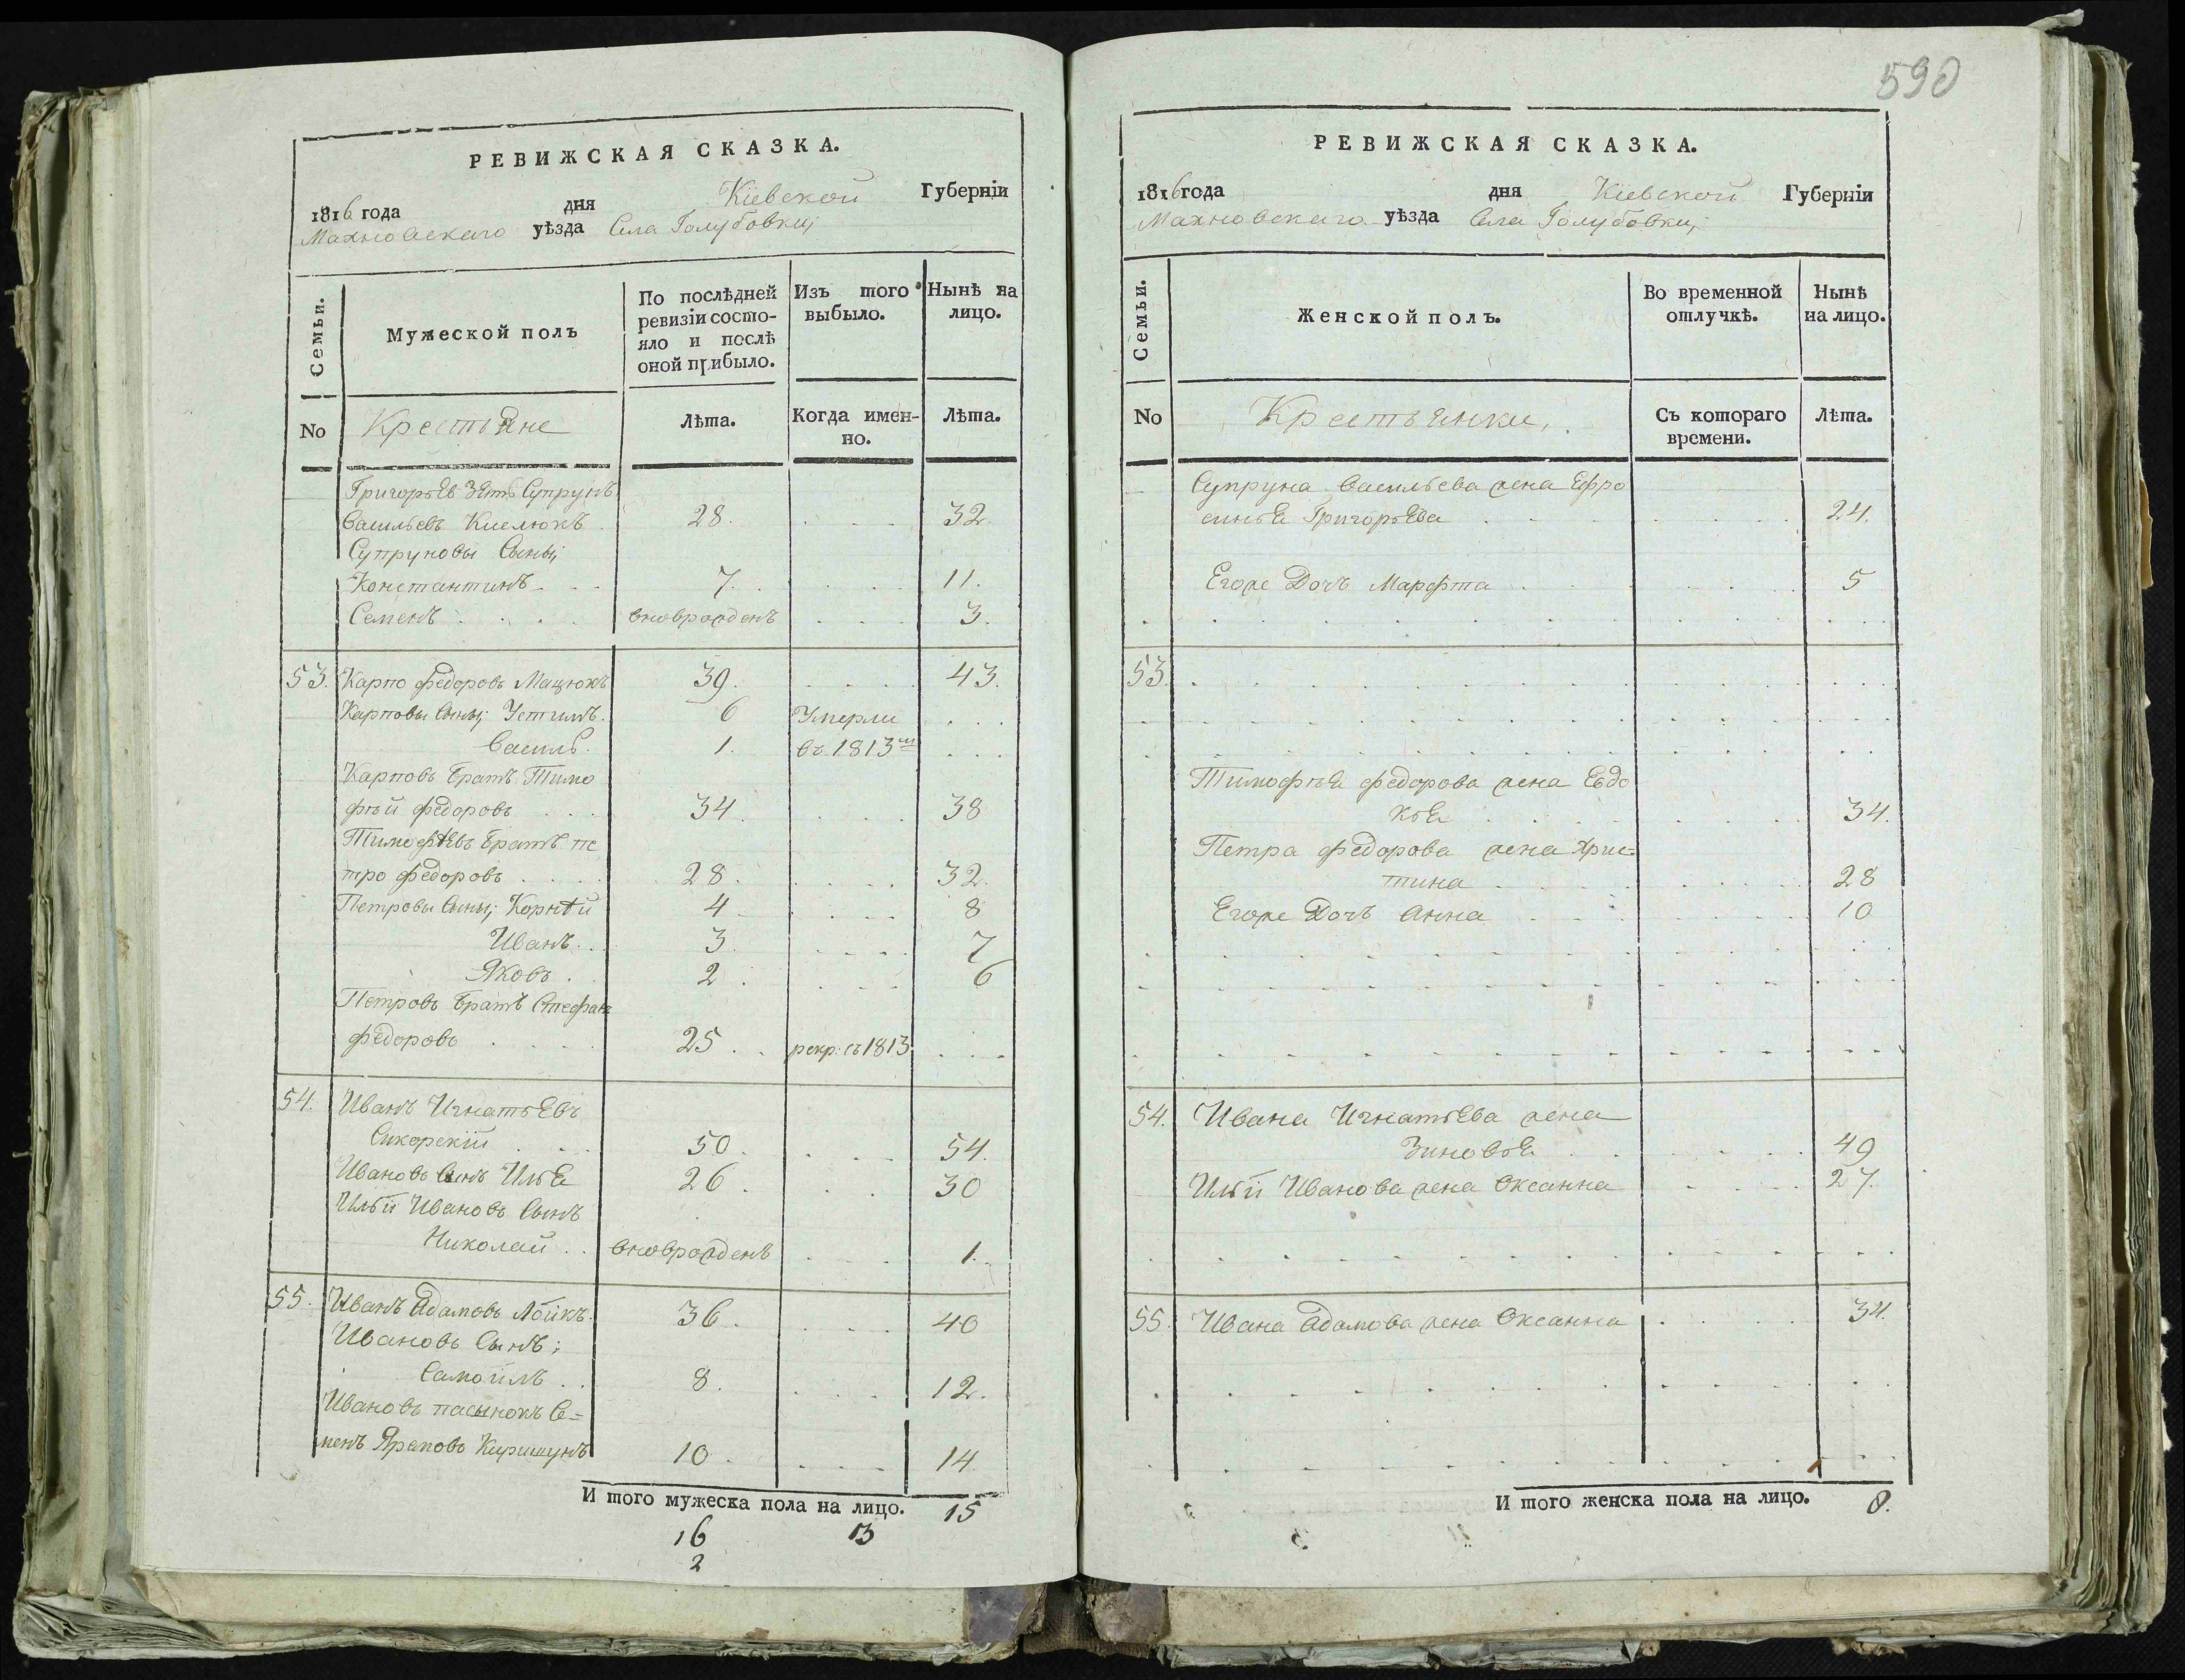 РЕВИЖСКАЯ СКАЗКА.
1816 года дня Кіевской Губерніи
Махновскаго уѣзда Села Голубовки;
Семьи.
Мужеской полъ
По послѣдней ревизіи состо-
яло и послѣ
оной прибыло.
Изъ того
выбыло.
Нынѣ на
лицо.
No
Крестьяне
Лѣта.
Когда имен-
но.
Лѣта.
Григорьев Зять Супрунъ
Васильевъ Киелюкъ . 28. 32.
Супруновы Сыны;
Константинъ 7. 11.
Семенъ вноврожденъ 3.
53. Карпо Федоровъ Мацюкъ 39. 43.
Карповы Сыны; Устимъ. 6 Умерли
Василь. 1. въ 1813м
Карповъ братъ Тимо
фѣй Федоровъ 34. 38
Тимофѣевъ братъ Пе
тро Федоровъ 28. 32.
Петровы Сыны; Корнѣй 4 8
Иванъ 3 7
Яковъ 2 6
Петровъ братъ Стефанъ
Федоровъ 25 рекр: въ 1813
54. Иванъ Игнатьевъ
Сикорскій 50. 54.
Ивановъ Сынъ Илья 26 30
Ильи Ивановъ Сынъ
Николай вноврожденъ 1.
55. Иванъ Адамовъ Лойкъ. 36. 40
Ивановъ Сынъ;
Самойлъ 8. 12.
Ивановъ пасынокъ Се=
менъ 10. 14.
И того мужеска пола на лицо. 15
16 13
2
590
РЕВИЖСКАЯ СКАЗКА.
1816 года дня Кіевской Губерніи
Махновскаго уѣзда Села Голубовки;
Семьи.
Женской полъ.
Во временной
отлучкѣ.
Нынѣ
на лицо.
No
Крестьянки,
Съ котораго
времени.
Лѣта.
Супруна Васильева жена Ефро
синья Григорьева 24.
Егоже Дочь Марфта 5
53
Тимофѣя Федорова жена Евдо
кья 34.
Петра Федорова жена Хрис=
тина 28
Егоже Дочь Анна 10
54. Ивана Игнатьева жена
Зиновья 49
Ильи Иванова жена Оксанна 27.
55. Ивана Адамова жена Оксанна 34.
И того женска пола на лицо. 8.